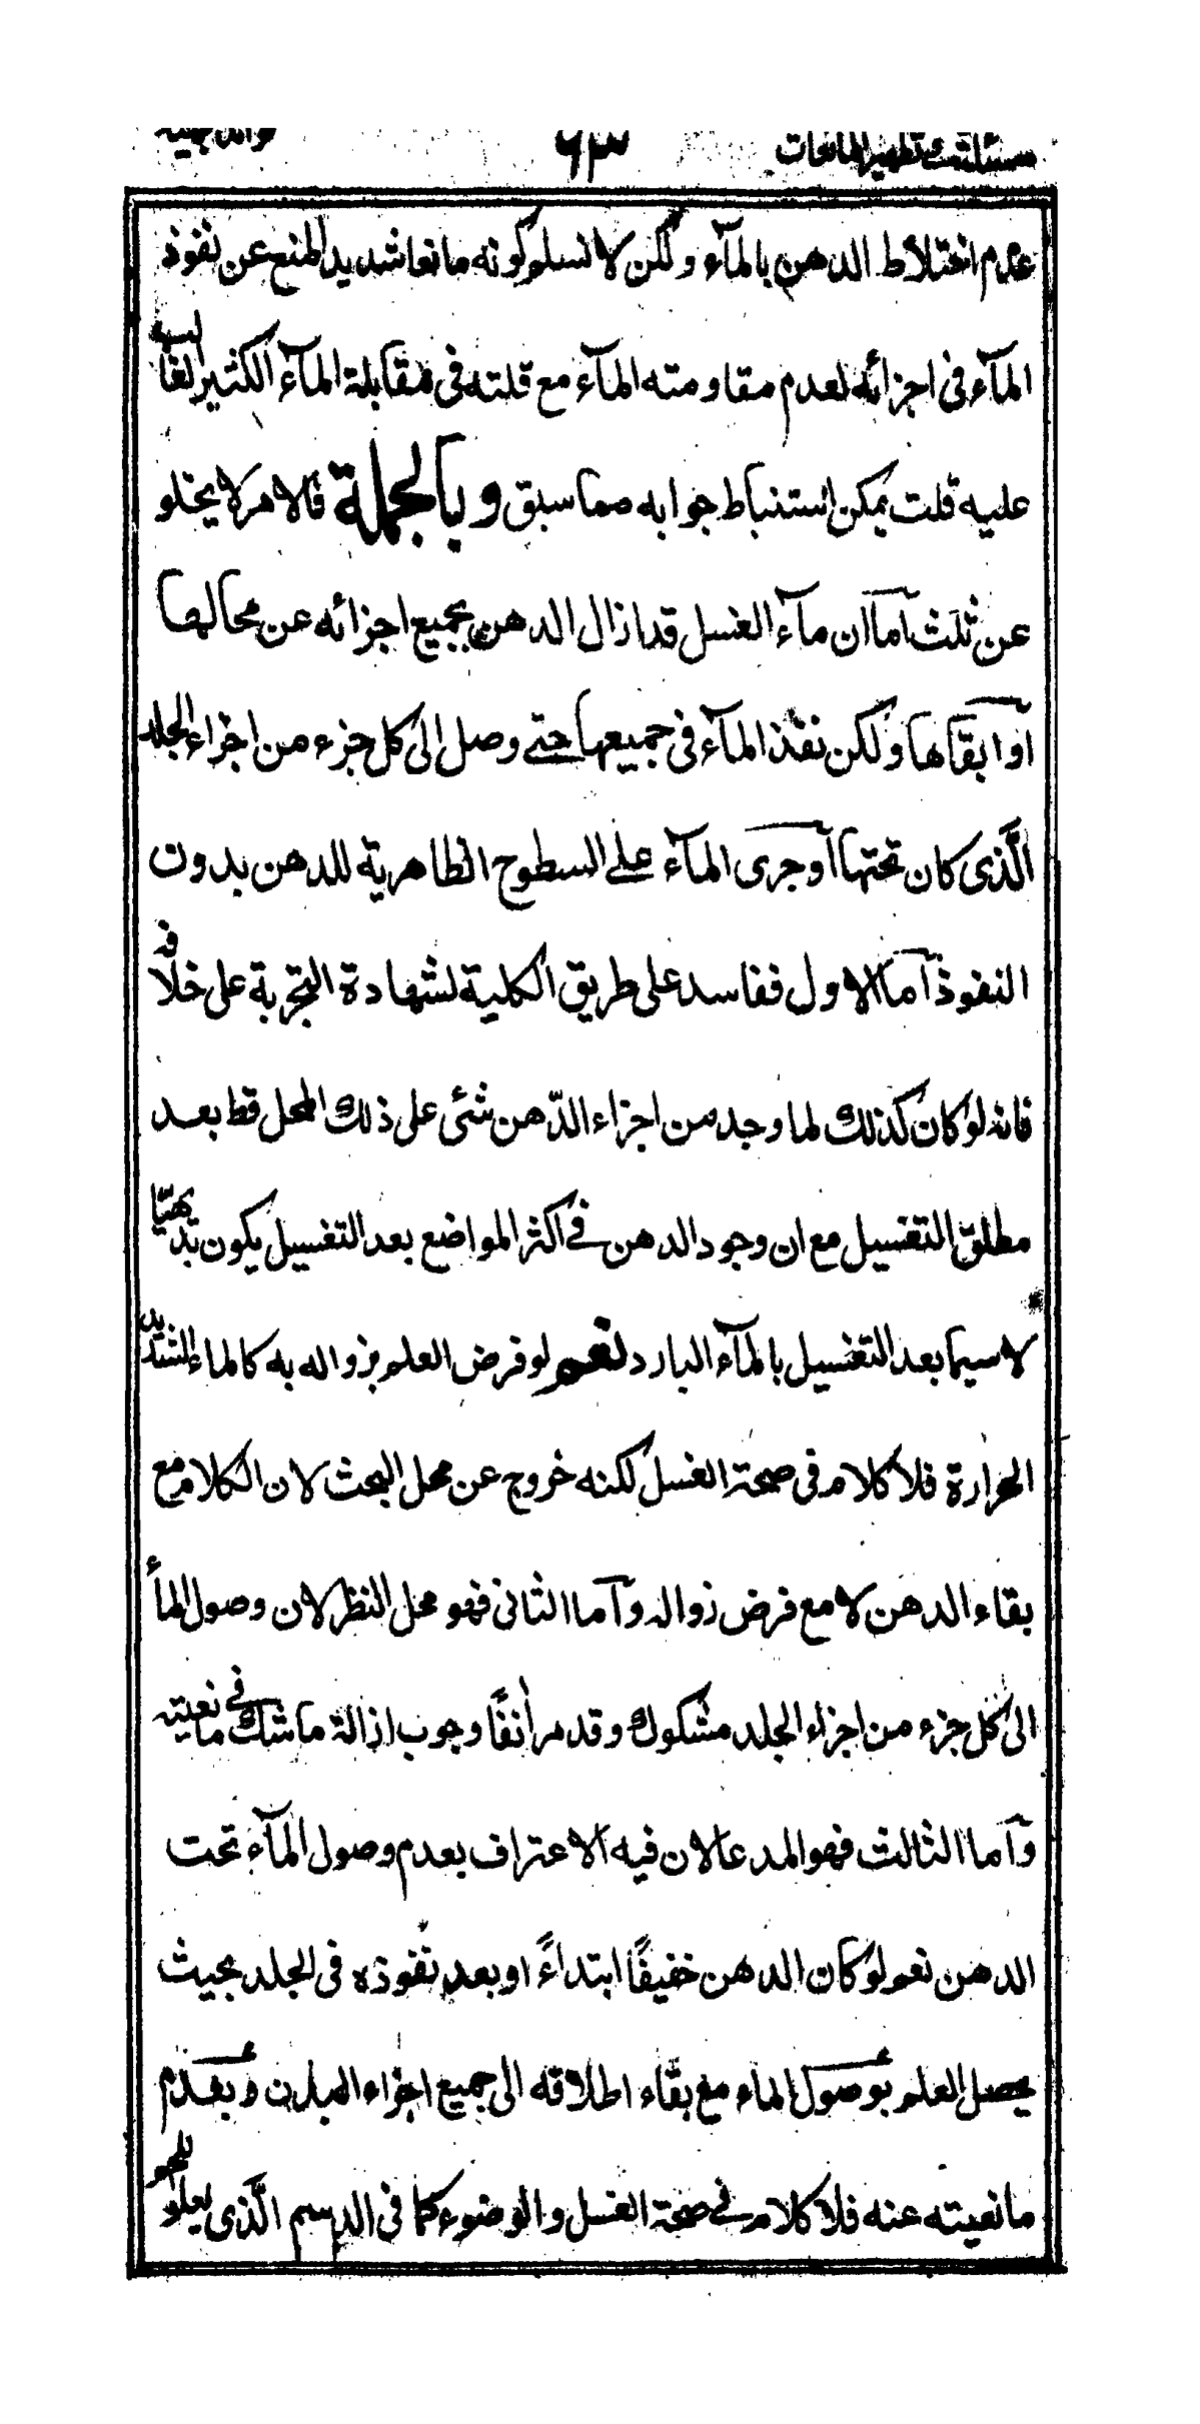 مسئلة تطهير المائعات ٦٣ فوائد بهية
عدم اختلاط الدهن بالمآء ولكن لا نسلم كونه مانعا شديد المنع عن نفوذ
المآء فى اجزائه لعدم مقاومته المآء مع قلته فى مقابلة المآء الكثير الغالب
عليه قلت يمكن استنباط جوابه مما سبق وبالجملة فالامر لا يخلو
عن ثلث آما ان مآء الغسل قد ازال الدهن بجميع اجزائه عن محالها
آو ابقاها ولكن نفذ المآء فى جميعها حتے وصل الى كل جزء من اجزاء الجلد
الَّذى كان تحتها آو جرى المآء علے السطوح الظاهرية للدهن بدون
النفوذ آما الاول ففاسد على طريق الكلية لشهادة التجربة على خلافه
فانه لو كان كذلك لما وجد من اجزاء الدّهن شئى على ذلك المحل قط بعد
مطلق التغسيل مع ان وجود الدهن فے اكثر المواضع بعد التغسيل يكون بديهيّا
لا سيما بعد التغسيل بالمآء البارد نعم لو فرض العلم بزواله به كالماء الشديد
الحرارة فلا كلام فى صحة الغسل لكنه خروج عن محل البحث لان الكلام مع
بقاء الدهن لا مع فرض زواله وآما الثانى فهو محل النظر لان وصول المأء
الى كل جزء من اجزاء الجلد مشكوك وقد مر أنفًا وجوب ازالة ما شك فے مانعيته
وآما الثالث فهو المدعا لان فيه الاعتراف بعدم وصول المآء تحت
الدهن نعم لو كان الدهن خفيفًا ابتداءً او بعد نفوذه فى الجلد بحيث
يحصل العلم بوصول الماء مع بقاء اطلاقه الى جميع اجزاء البدن وبعدم
مانعيته عنه فلا كلام فے صحة الغسل والوضوء كما فى الدسم الَّذى يعلو